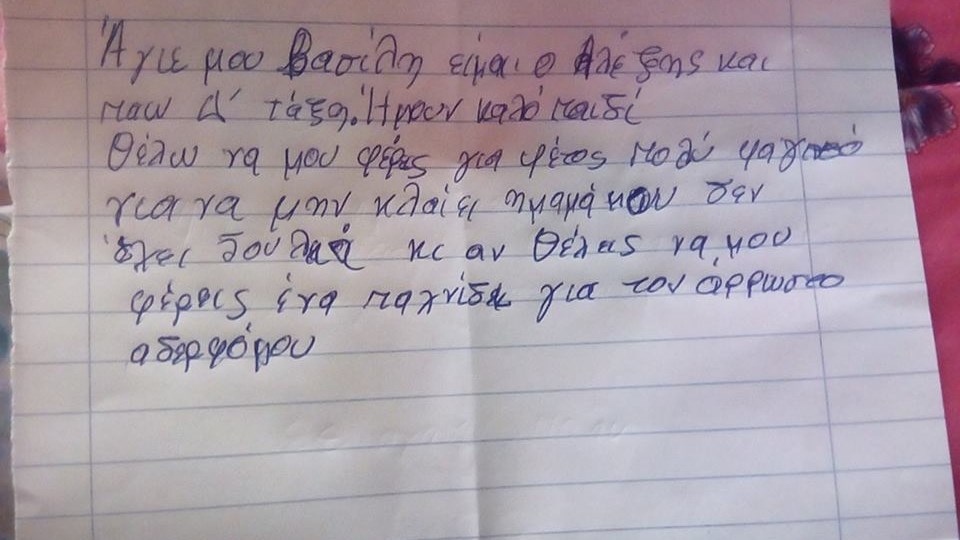 Άγιε μου Βασίλη είμαι ο Αλέξης και
παω Δ΄ τάξη. Ήμουν καλό παιδί
Θέλω να μου φέρεις για φέτος πολύ φαγητό
για να μην κλαίει η μαμά μου δεν
έχει δουλειά κι αν θέλεις να μου
φέρεις ένα παχνίδι για τον άρρωστο
αδερφό μου